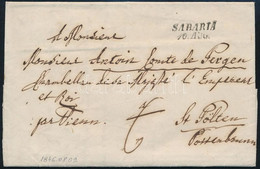 SABARIA
a Monsieur
Monsieur Antoin Comte de Pergen
Chambellan de sa Majesté L'Empereur
et Roi
par Vienn.
St Pölten
Pottenbrunn